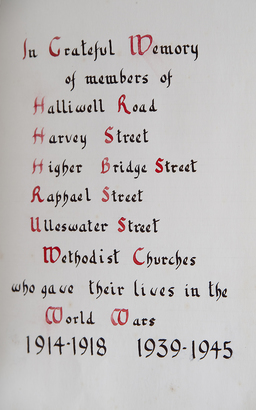 In Grateful Memory
of members of
Halliwell Road
Harvey Street
Higher Bridge Street
Raphael Street
Ulleswater Street
Methodist Churches
who gave their lives in the
World Wars
1914-1918 1939-1945